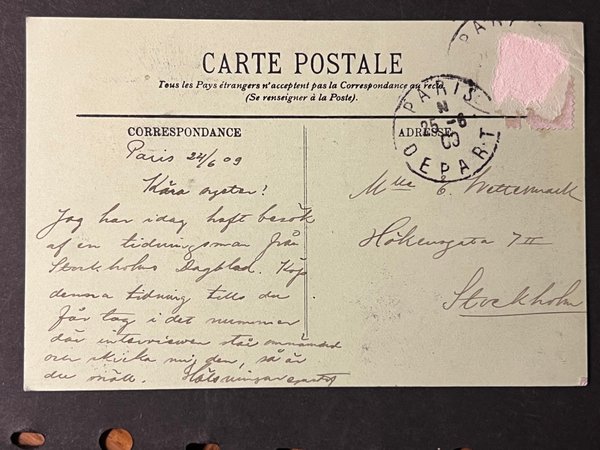 PARI
CARTE POSTALE
Tous les Pays étrangers n'acceptent pas la Correspondance au recto.
(Se renseigner à la Poste).
PARIS
25 -6
09
DEPART
CORRESPONDANCE
ADRESSE
Paris 24/6 09
Kära syster!
Jag har idag haft besök
af en tidningsman från
Stockholms Dagblad. Köp
denna tidning tills du
får tag i det nummer
där interviewen står omnämnd
och skicka mig den, så är
du snäll. Hälsningar
Mlle E. Wettermark
Hökensgata 7 II
Stockholm